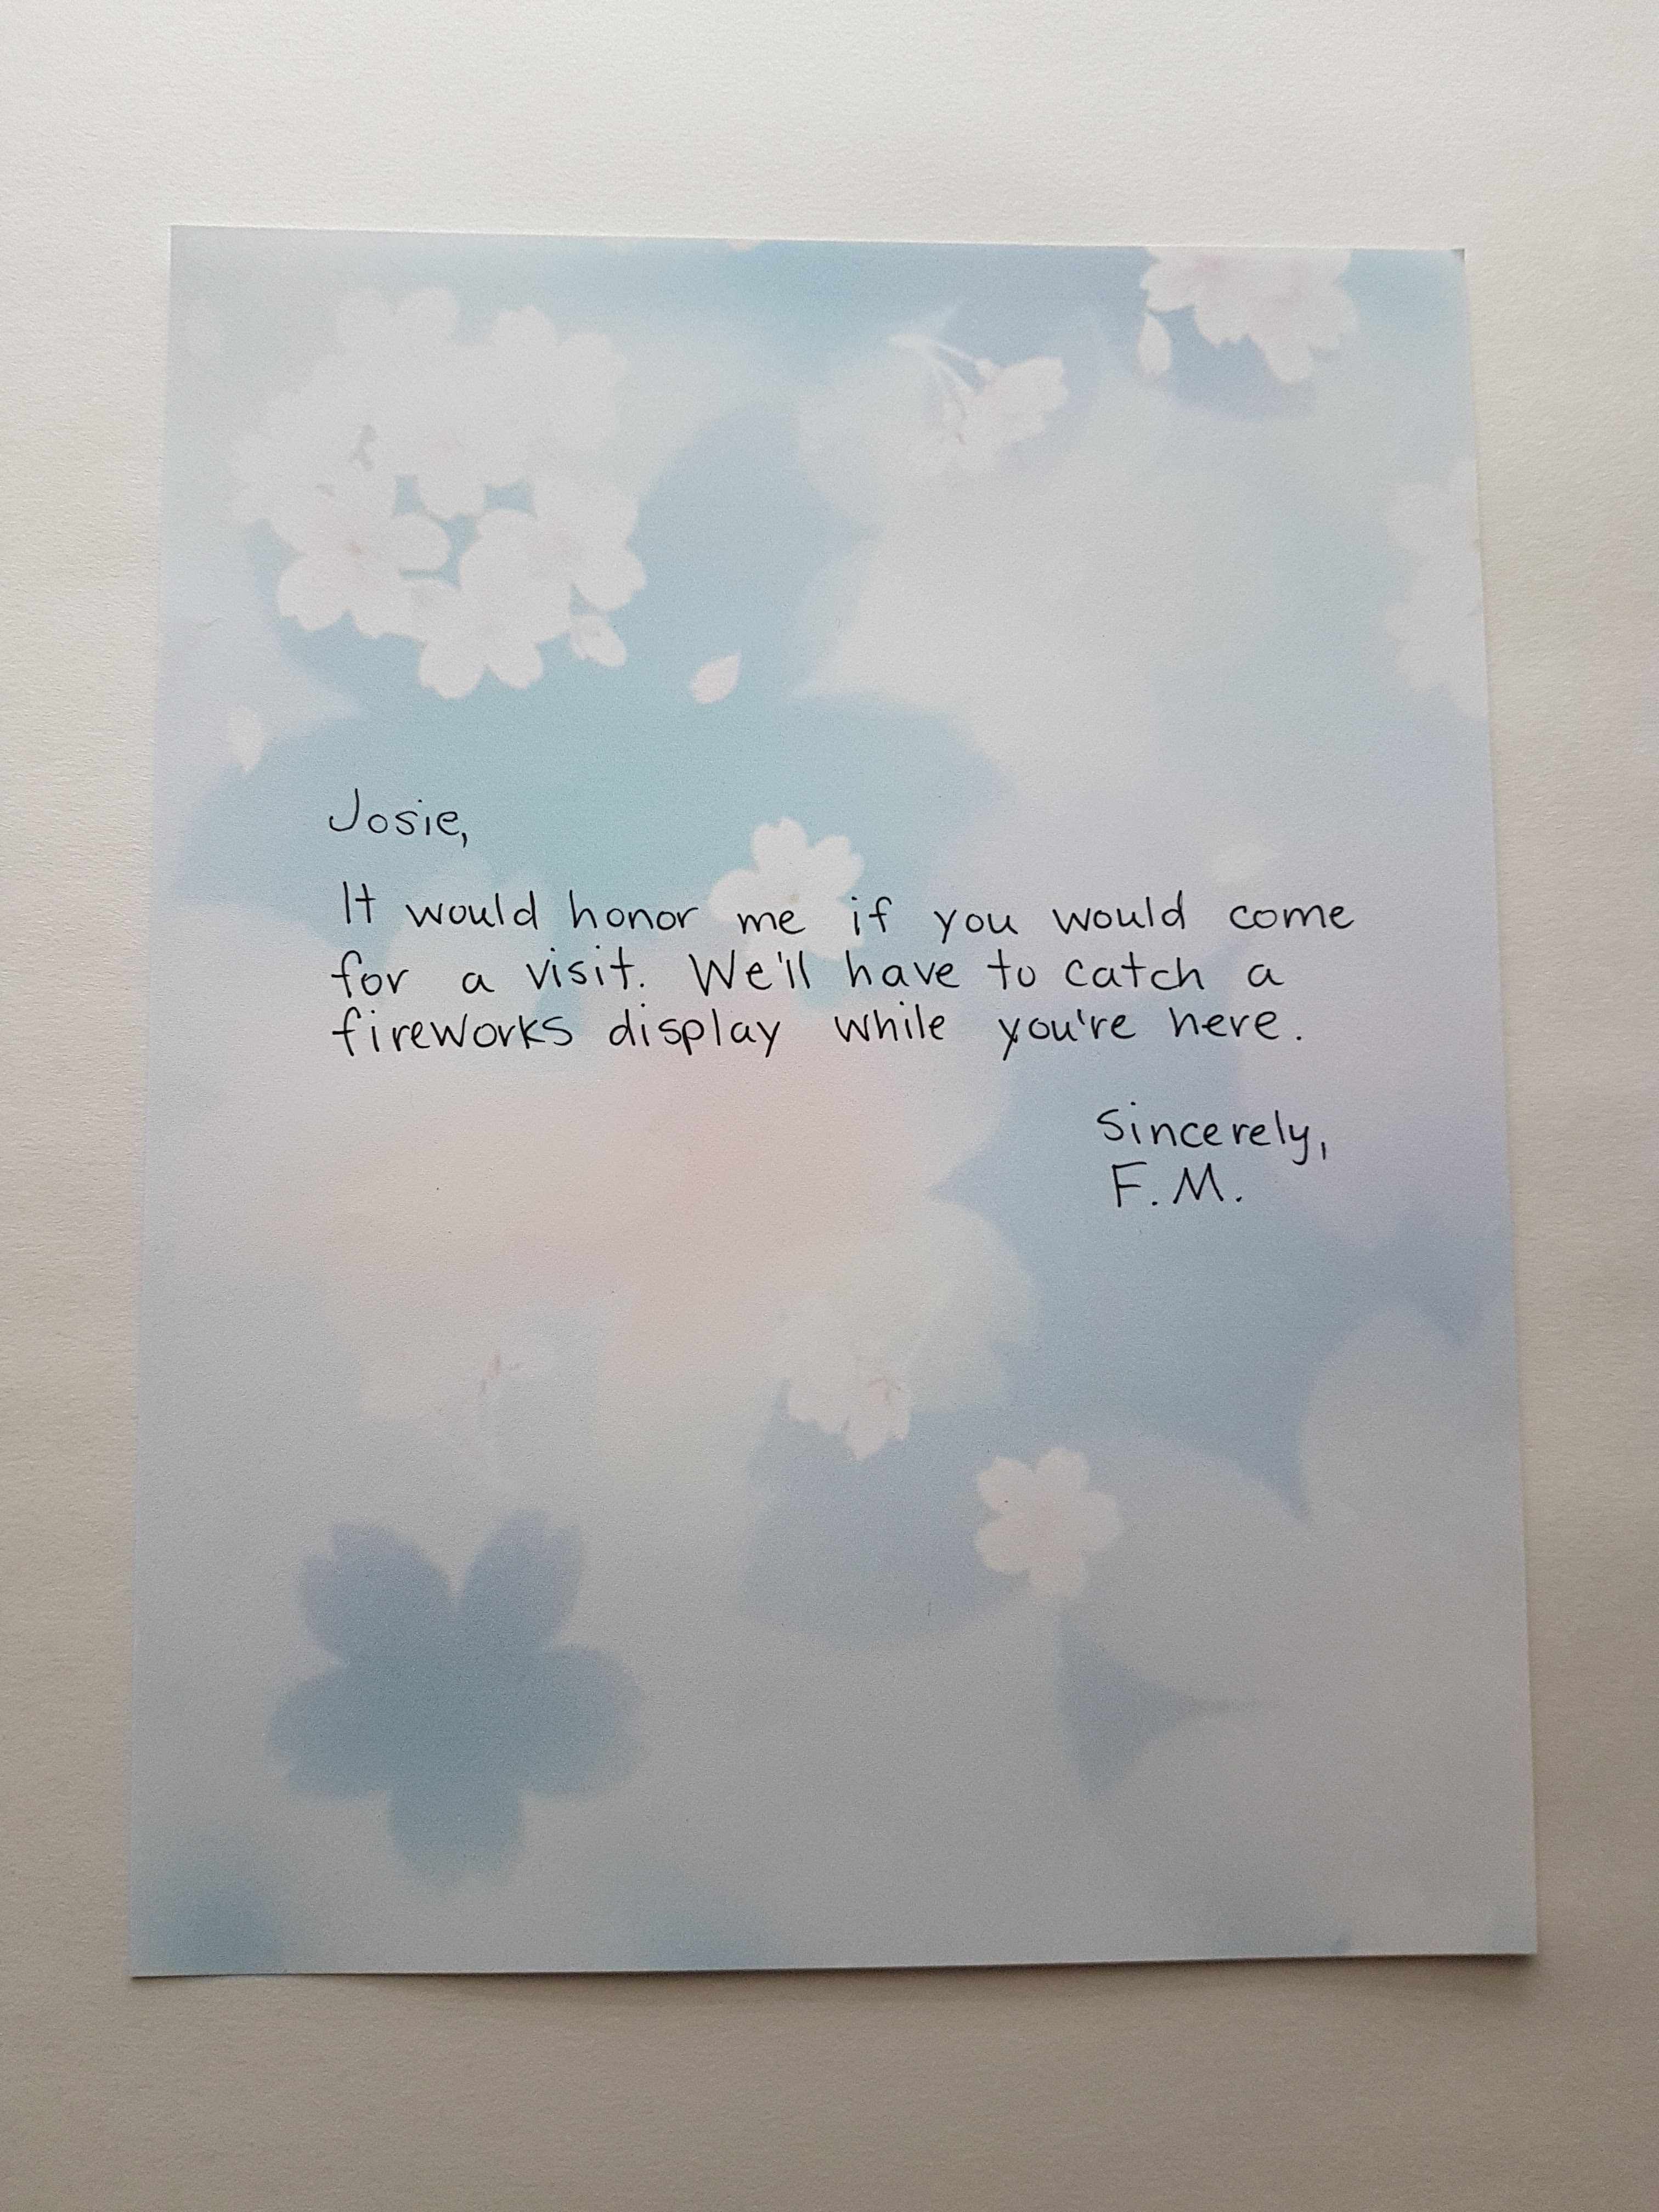 Josie,
It would honor me if you would come
for a visit. We'll have to catch a
fireworks display while you're here.
Sincerely,
F.M.